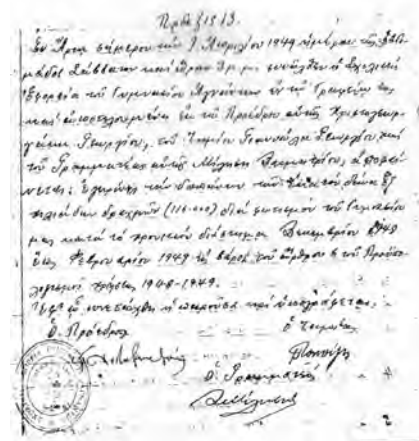 Πρᾶξις 13.
Ἐν Ἄργει σήμερον τὴν 9 Ἀπριλίου 1949 ἡμέραν τῆς ἑβδο-
μάδος Σάββατον καὶ ὥραν 3μ.μ. συνῆλθεν ἡ Σχολικὴ
Ἐφορεία τοῦ Γυμνασίου ἐν τῷ Γραφείῳ της
καὶ ἀποτελουμένη ἐκ τοῦ Προέδρου αὐτῆς
Γεωργίου, τοῦ Ταμίου Γεωργίου καὶ
τοῦ Γραμματέως αὐτῆς Δημητρίου, ἀποφαί-
νεται: Ἐγκρίνει τὴν δαπάνην τῶν ἑκατὸν δέκα ἓξ
χιλιάδων δραχμῶν (116.000) διὰ φωτισμὸν τοῦ Γυμνασίου
μας κατὰ τὸ χρονικὸν διάστημα Δεκεμβρίου
ἕως Φεβρουαρίου 1949 εἰς βάρος τοῦ ἄρθρου 6 τοῦ Προϋπο-
λογισμοῦ χρήσεως 1948-1949.
Ἐφ' ᾧ συνετάχθη ἡ παροῦσα καὶ ὑπογράφεται.
Ὁ Πρόεδρος Ὁ Ταμίας
Ὁ Γραμματεύς